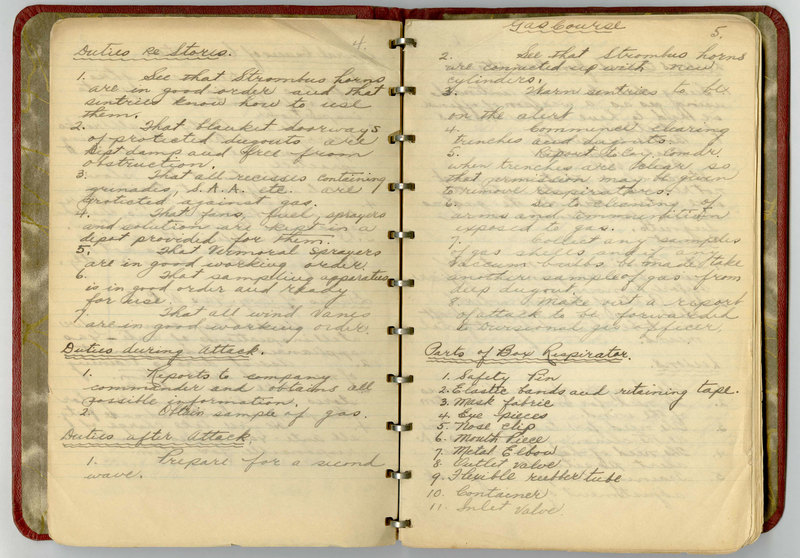 4.
Duties re Stores.
1. See that Strombus horns
are in good order and that
sentries know how to use
them.
2. That blanket doorways
of protected dugouts are
kept damp and free from
obstruction.
3. That all recesses containing
grenades, S.A.A. etc. are
protected against gas.
4. That fans, fuel, sprayers
and solution are kept in a
depot provided for them.
5. That Vermoral Sprayers
are in good working order.
6. That sampling apparatus
is in good order and ready
for use.
7. That all wind vanes
are in good working order.
Duties during Attack.
1. Reports to company
commander and obtains all
possible information.
2. Obtain sample of gas.
Duties after Attack.
1. Prepare for a second
wave.
Gas Course
5.
2. See that Strombus horns
are connected up with new
cylinders.
3. Warn sentries to be
on the alert
4. Commence clearing
trenches and dugouts.
5. Report to Coy. Comdr.
when trenches are clear so
that permission may be given
to remove respirators.
6. See to cleaning of
arms and ammunition
exposed to gas.
7. Collect any samples
of gas shells and if any
vacuum bulbs be made take
another sample of gas from
deep dugout.
8. Make out a report
of attack to be forwarded
to divisional gas officer.
Parts of Box Respirator.
1. Safety Pin
2. Elastic bands and retaining tape.
3. Mask fabric
4. Eye pieces
5. Nose clip
6. Mouth Piece
7. Metal Elbow
8. Outlet valve
9. Flexible rubber tube
10. Container
11. Inlet Valve.